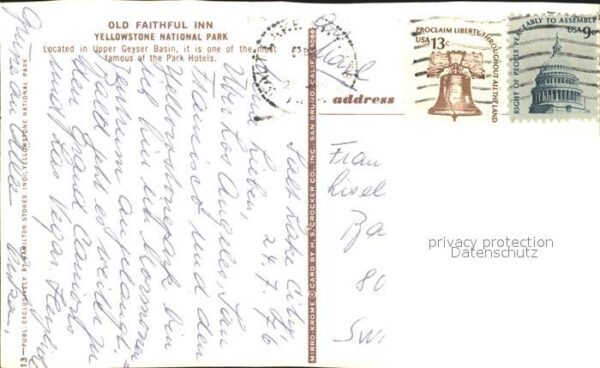 OLD FAITHFUL INN
YELLOWSTONE NATIONAL PARK
Located in Upper Geyser Basin, it is one of the most
famous of the Park Hotels.
13—PUBL. EXCLUSIVELY BY HAMILTON STORES INC., YELLOWSTONE NATIONAL PARK
MIRRO-KROME ® CARD BY H. S. CROCKER CO., INC., SAN BRUNO, CALIF. 94066
Salt Lake City,
24.7.76
Lieben,
Los Angeles, San
Francisco und den
Yellowstonepark bin
ich hier im Mormonen
Zentrum angelangt.
Bald geht es weiter zu
den Grand Canions
und Las Vegas.
address
PROCLAIM LIBERTY THROUGHOUT ALL THE LAND
USA 13c
RIGHT OF PEOPLE PEACEABLY TO ASSEMBLE
USA 9c
Frau
Lisel
Ba
80
Sw
privacy protection
Datenschutz